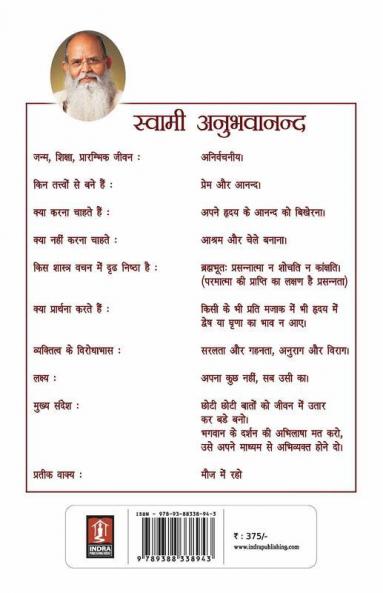 स्वामी अनुभवानन्द
जन्म, शिक्षा, प्रारम्भिक जीवन : अनिर्वचनीय।
किन तत्त्वों से बने हैं : प्रेम और आनन्द।
क्या करना चाहते हैं : अपने हृदय के आनन्द को बिखेरना।
क्या नहीं करना चाहते : आश्रम और चेले बनाना।
किस शास्त्र वचन में दृढ निष्ठा है : ब्रह्मभूतः प्रसन्नात्मा न शोचति न कांक्षति।
(परमात्मा की प्राप्ति का लक्षण है प्रसन्नता)
क्या प्रार्थना करते हैं : किसी के भी प्रति मजाक में भी हृदय में
द्वेष या घृणा का भाव न आए।
व्यक्तित्व के विरोधाभास : सरलता और गहनता, अनुराग और विराग।
लक्ष्य : अपना कुछ नहीं, सब उसी का।
मुख्य संदेश : छोटी छोटी बातों को जीवन में उतार
कर बडे बनो।
भगवान के दर्शन की अभिलाषा मत करो,
उसे अपने माध्यम से अभिव्यक्त होने दो।
प्रतीक वाक्य : मौज में रहो
ISBN - 978-93-88338-94-3
INDRA
PUBLISHING HOUSE
9789388338943
₹ : 375/-
www.indrapublishing.com